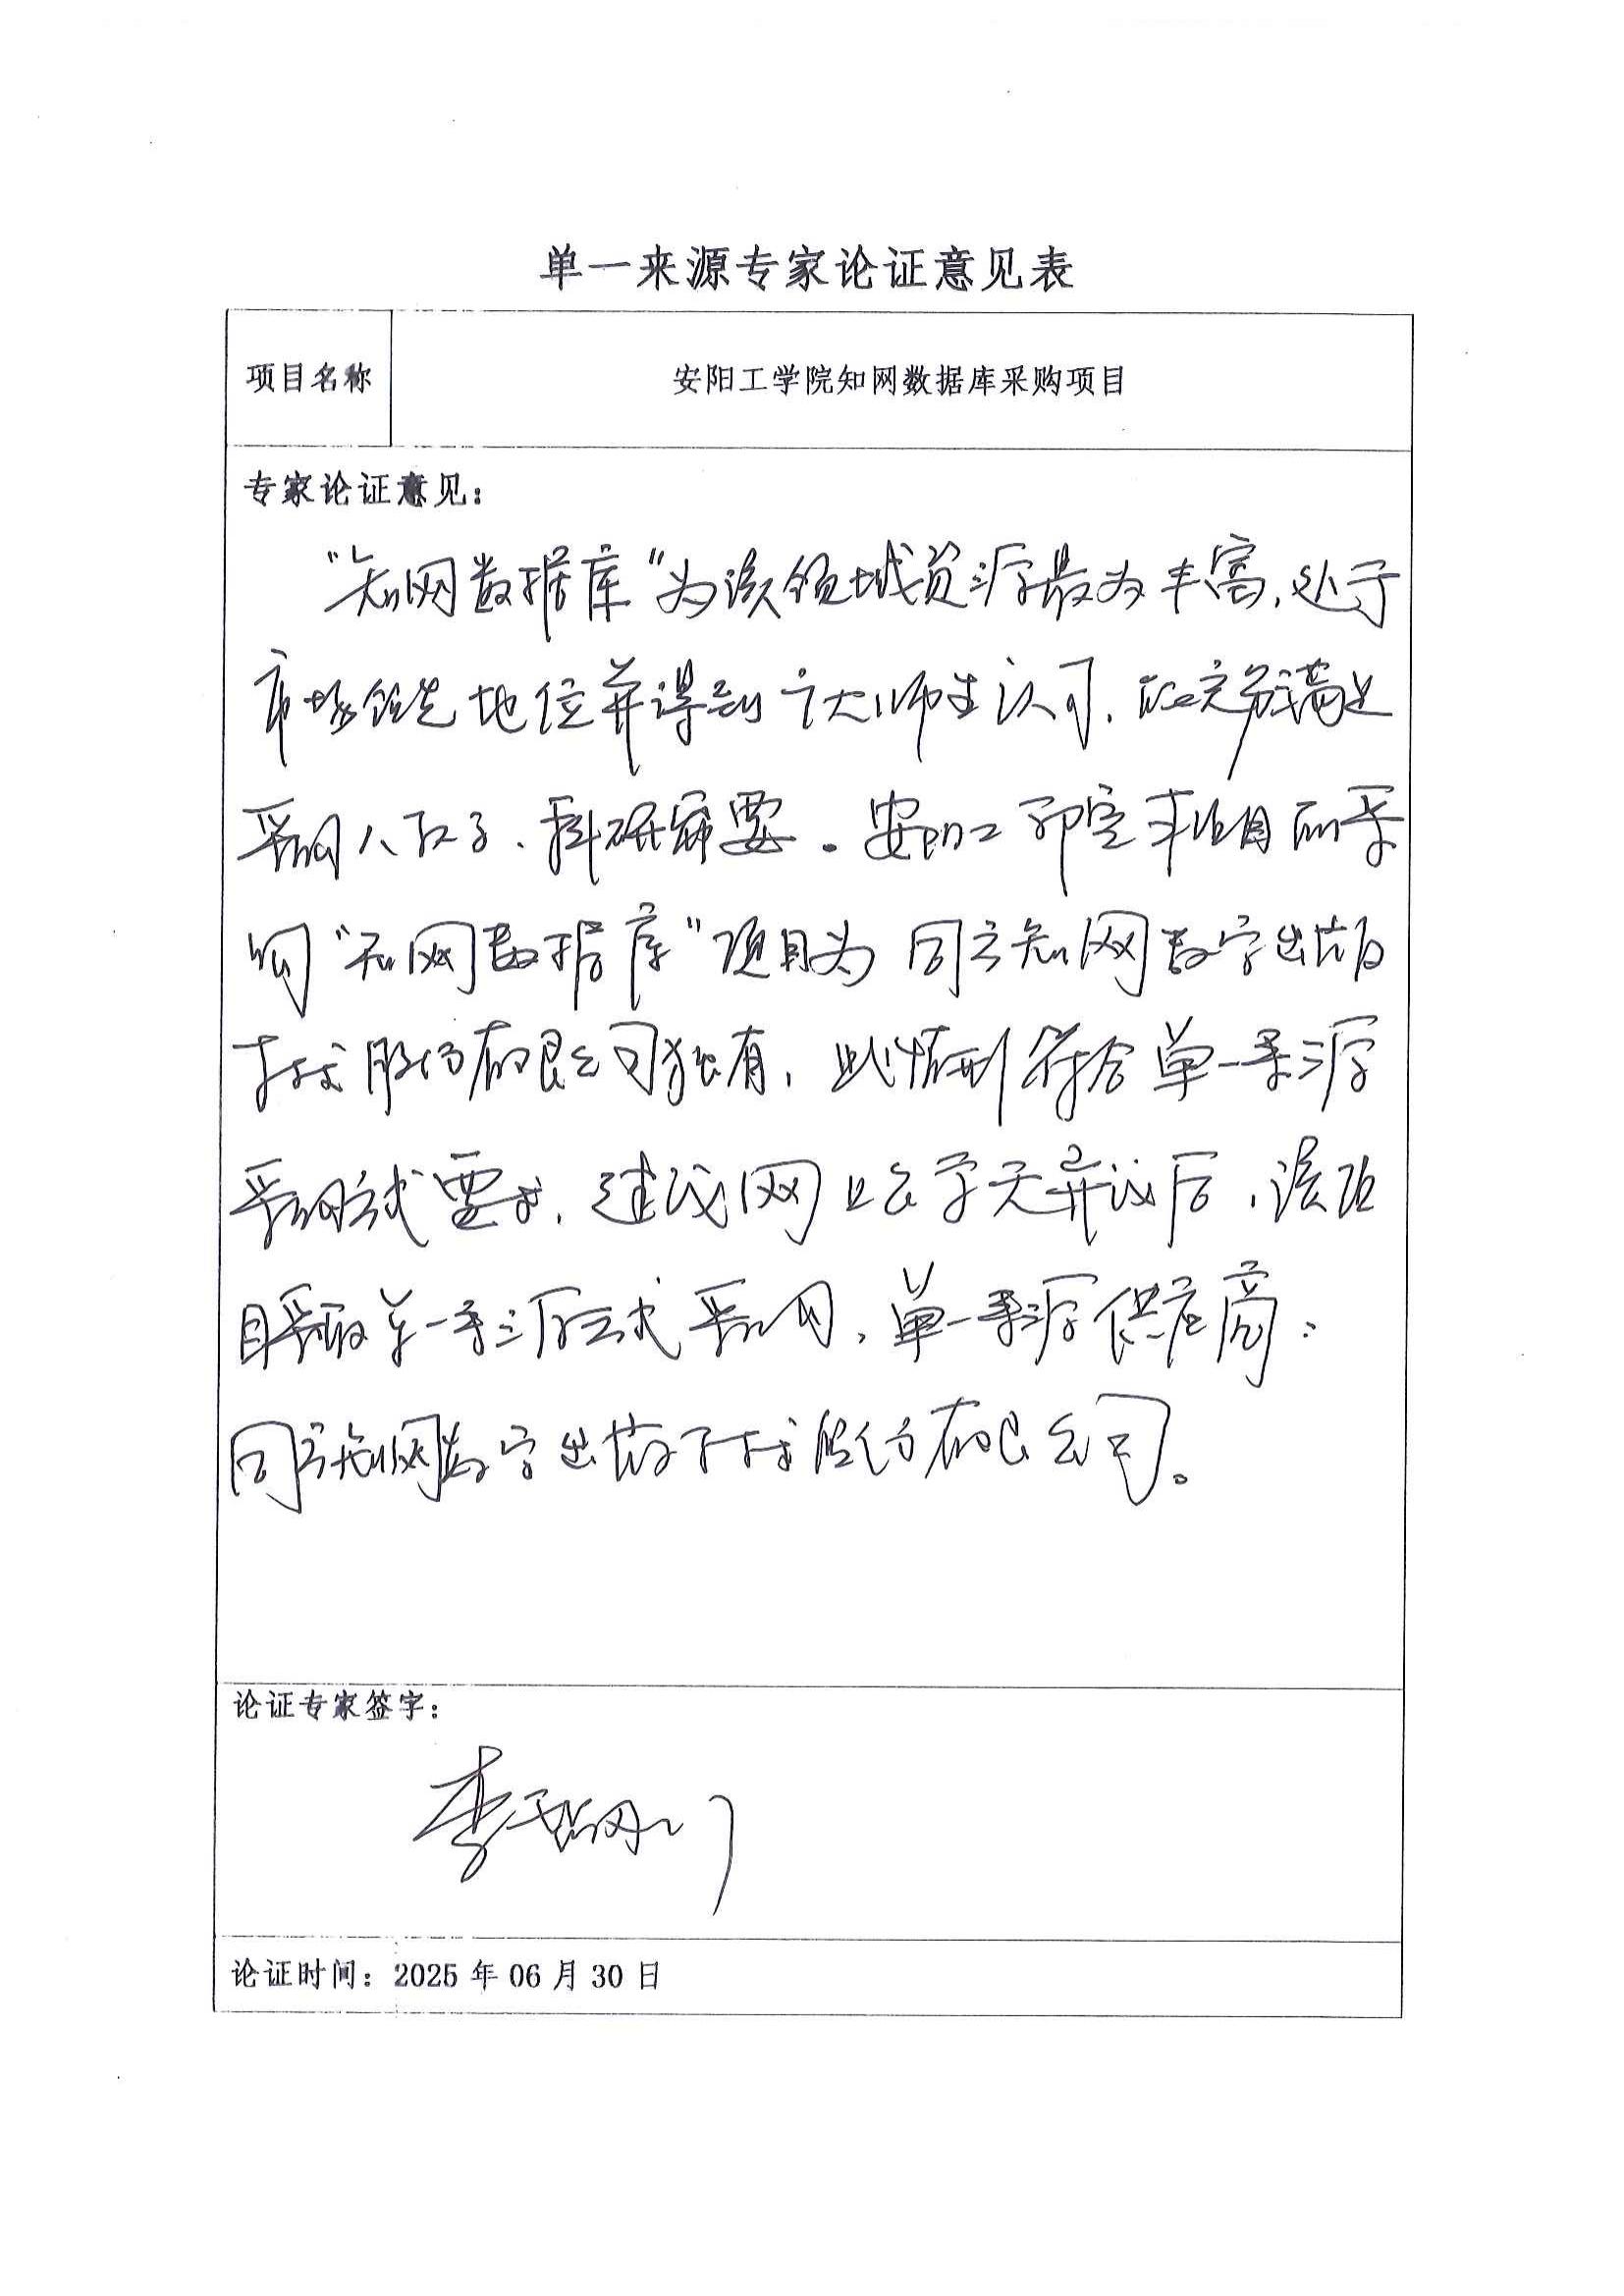 单一来源专家论证意见表
项目名称
安阳工学院知网数据库采购项目
专家论证意见：
“知网数据库”为该领域资源最为丰富，处于
市场领先地位并得到广大师生认可，满足
采购人教学、科研需要。安阳工学院本项目所采
购“知网数据库”项目为同方知网数字出版
技术股份有限公司独有，此情形符合单一来源
采购方式要求，建议网上公示无异议后，该项
目采取单一来源方式采购，单一来源供应商：
同方知网数字出版技术股份有限公司。
论证专家签字：
李
论证时间：2025 年 06 月 30 日